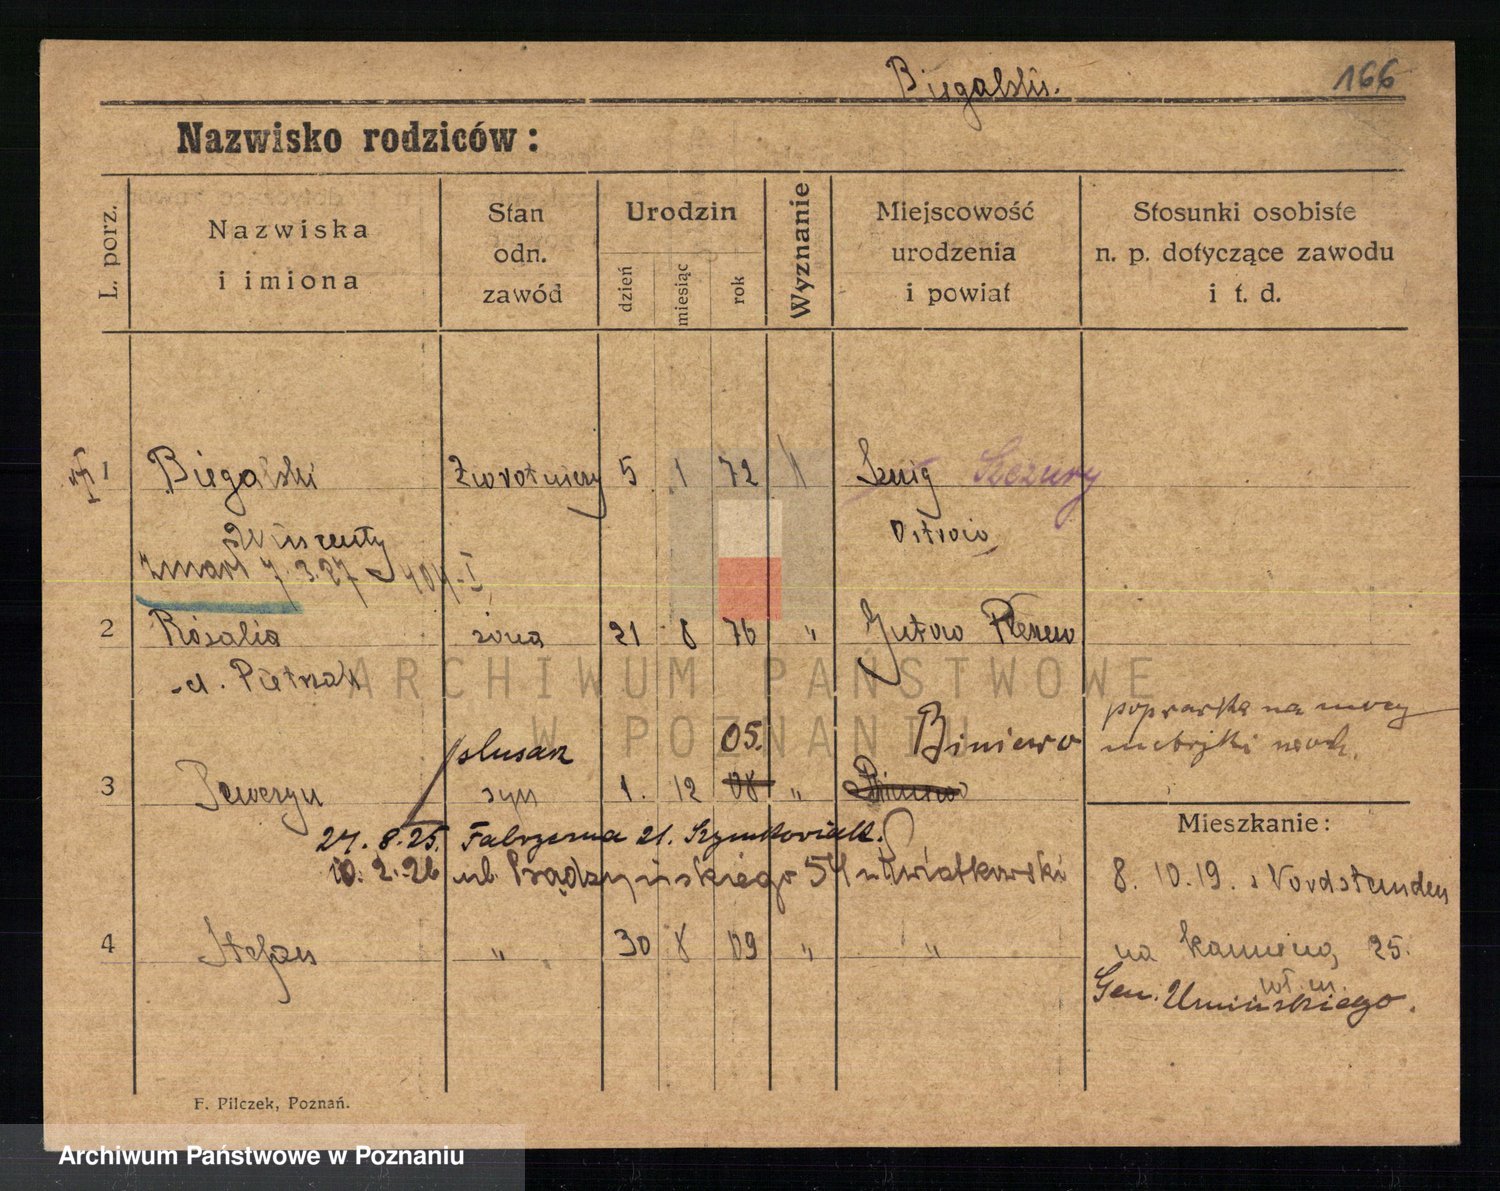 Biegalski.
166
Nazwisko rodziców:
L. porz.
Nazwiska
i imiona
Stan
odn.
zawód
Urodzin
dzień
miesiąc
rok
Wyznanie
Miejscowość
urodzenia
i powiat
Stosunki osobiste
n. p. dotyczące zawodu
i t. d.
1 Biegalski Zwrotniczy 5 1 72 Szczury
Wincenty Ostrów
zmarł 7.3.27
2 Rozalia żona 21 8 76 " Gutów Pleszew
d. Pietrzak
ślusarz 05. Biniewo poprawka na mocy
metryki urodz.
3 Seweryn syn 1. 12 08 "
Mieszkanie:
27. 8. 25. Fabryczna 21. Szymkowiak.
10. 2. 26 ul. Prądzyńskiego 54 u Kwiatkowski
8. 10. 19. z Nordstemden
4 Stefan " 30 8 09 " "
na kamieną 25.
wł. m.
Gen. Umińskiego.
F. Pilczek, Poznań.
ARCHIWUM PAŃSTWOWE
W POZNANIU
Archiwum Państwowe w Poznaniu